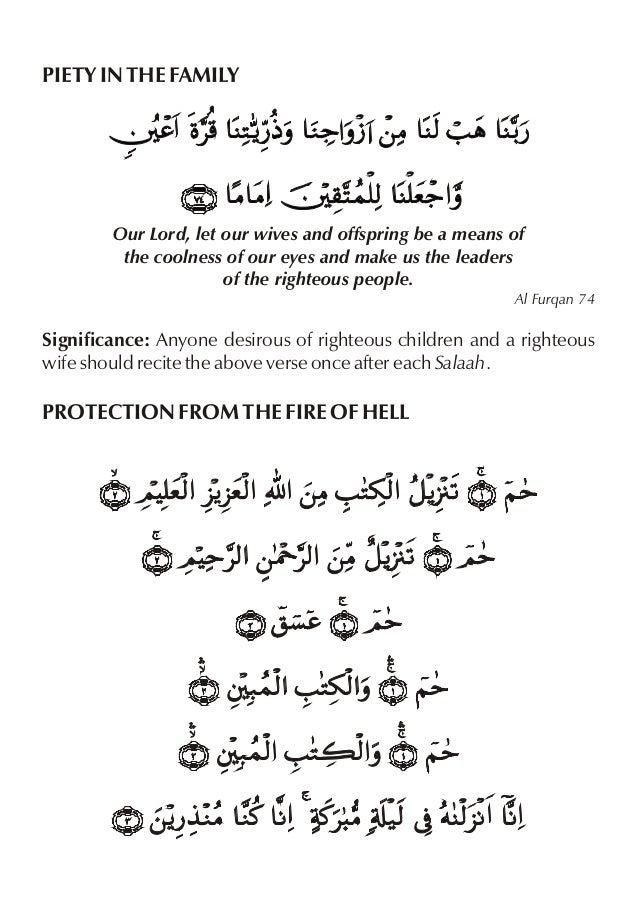 PIETY IN THE FAMILY
رَبَّنَا هَبْ لَنَا مِنْ اَزْوَاجِنَا وَذُرِّيّٰتِنَا قُرَّةَ اَعْيُنٍ
وَّاجْعَلْنَا لِلْمُتَّقِيْنَ اِمَامًا ﴿٧٤﴾
Our Lord, let our wives and offspring be a means of
the coolness of our eyes and make us the leaders
of the righteous people.
Al Furqan 74
Significance: Anyone desirous of righteous children and a righteous
wife should recite the above verse once after each Salaah.
PROTECTION FROM THE FIRE OF HELL
حٰمٓ ﴿١﴾ۚ تَنْزِيْلُ الْكِتٰبِ مِنَ اللهِ الْعَزِيْزِ الْعَلِيْمِ ﴿٢﴾ۙ
حٰمٓ ﴿١﴾ۚ تَنْزِيْلٌ مِّنَ الرَّحْمٰنِ الرَّحِيْمِ ﴿٢﴾ۚ
حٰمٓ ﴿١﴾ۚ عٓسٓقٓ ﴿٢﴾
حٰمٓ ﴿١﴾ۚ وَالْكِتٰبِ الْمُبِيْنِ ﴿٢﴾ۙ
حٰمٓ ﴿١﴾ۚ وَالْكِتٰبِ الْمُبِيْنِ ﴿٢﴾ۙ
اِنَّآ اَنْزَلْنٰهُ فِيْ لَيْلَةٍ مُّبٰرَكَةٍ ۚ اِنَّا كُنَّا مُنْذِرِيْنَ ﴿٣﴾